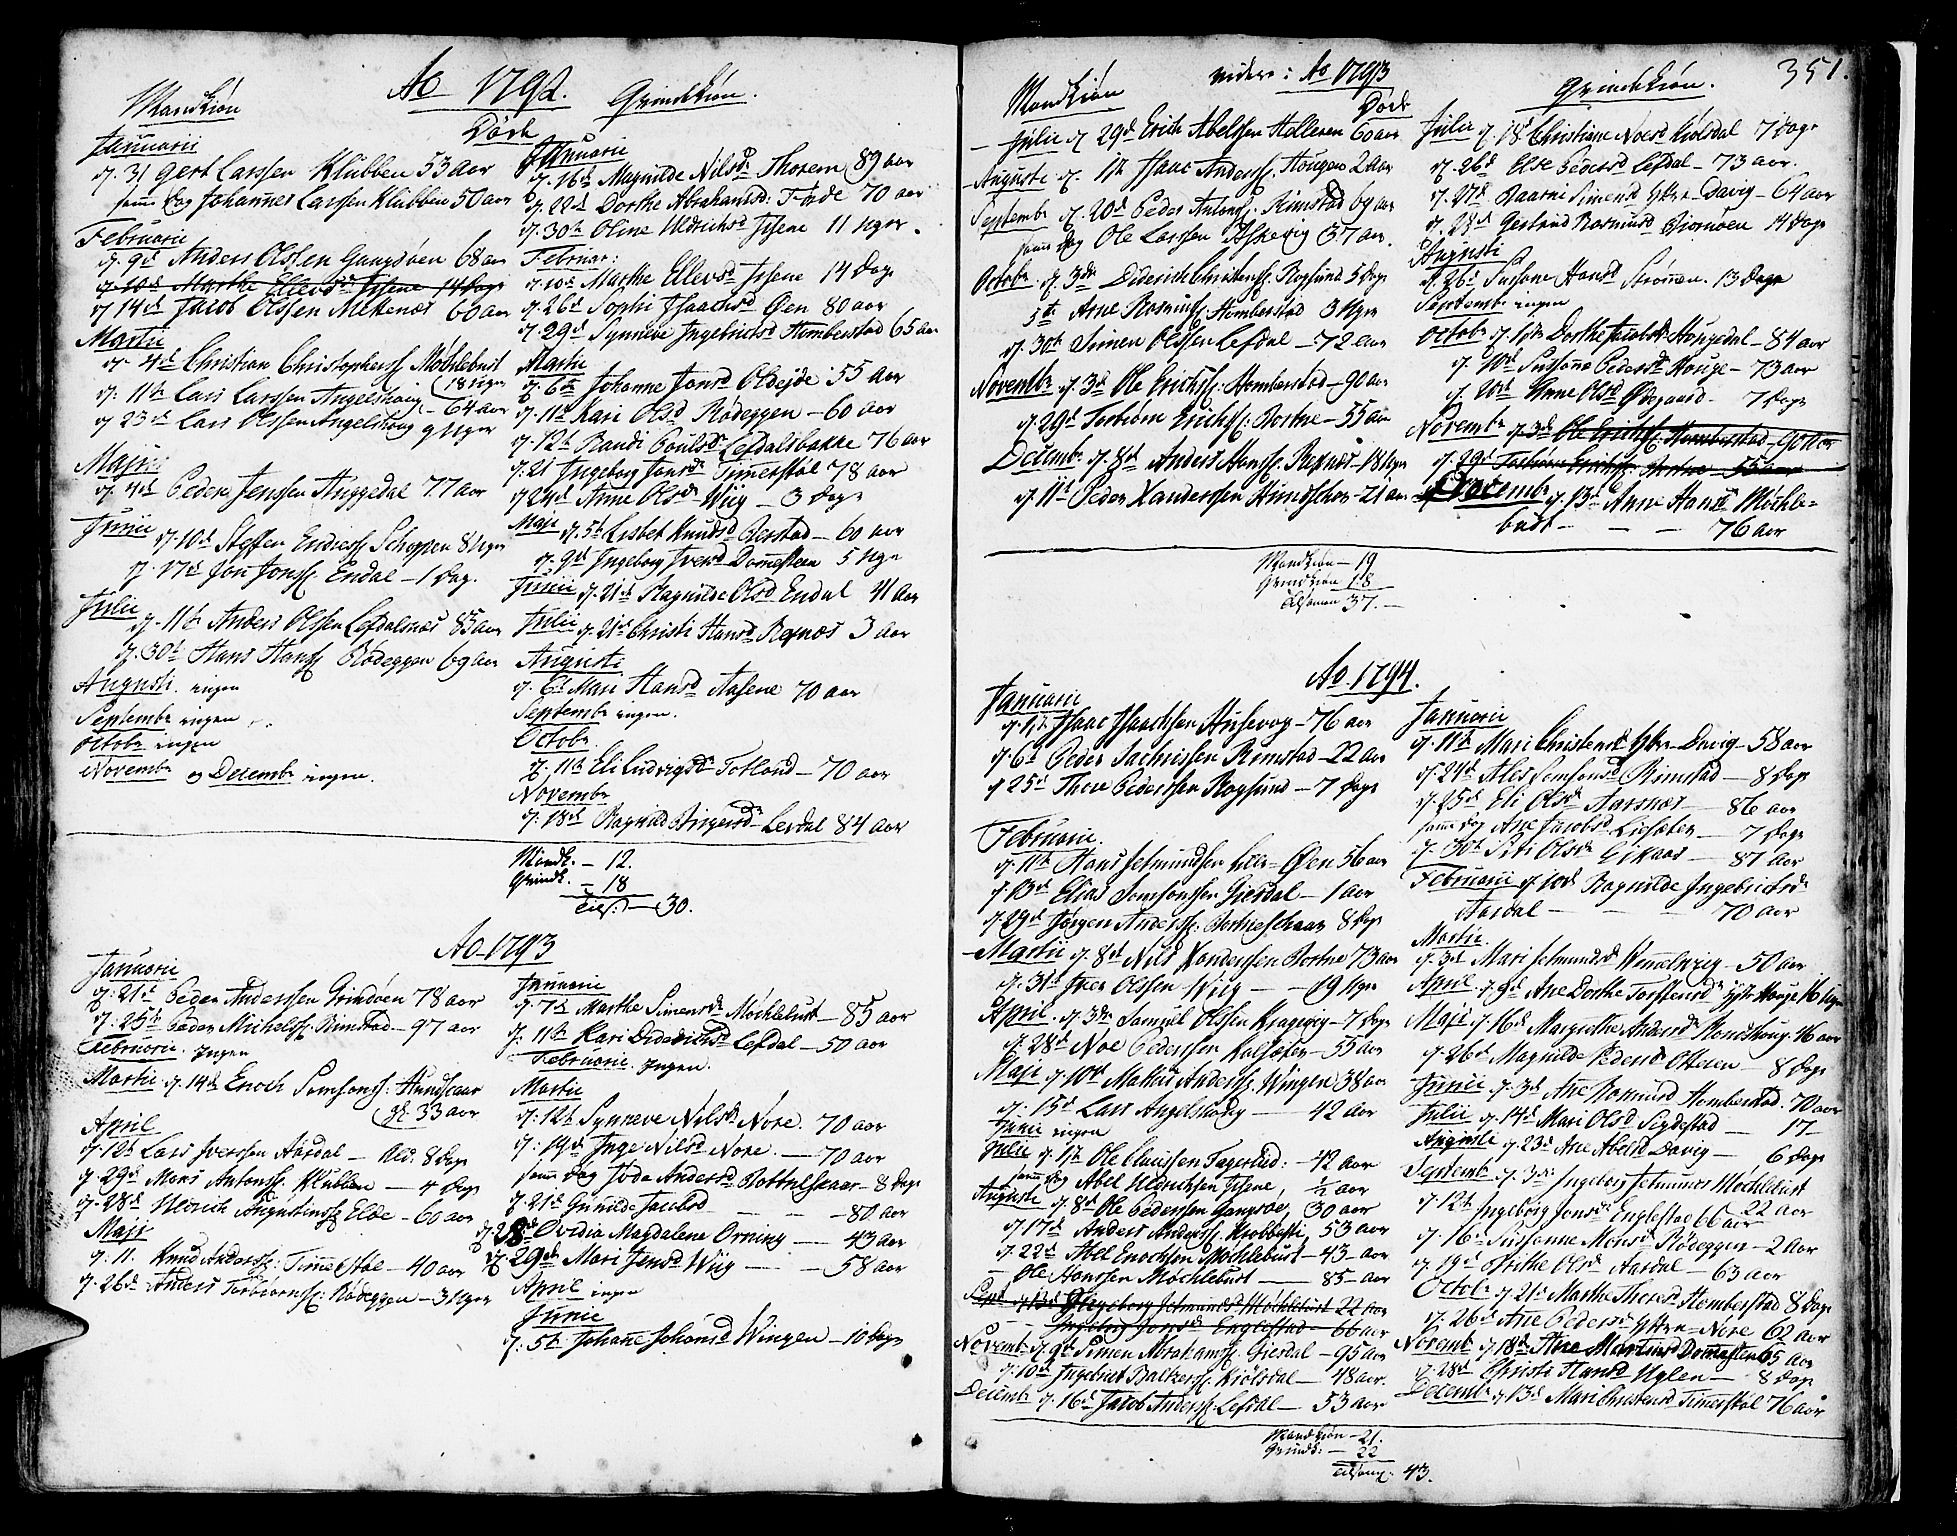 Ao 1792.
Døde
Mandkiøn
Januarii
d. 31 Gert Larssen Klubben 53 aar
samme dag Johannes Larssen Klubben 50 aar
Februarii
d. 9d Anders Olssen Gangsøen 68 aar
d. 10d Marthe Ellevsd Issene 14 dage
d 14d Jacob Olssen Mettenæs 60 aar
Martii
d. 4d Christian Christophers. Møchlebust
18 uger
d. 11th Lars Larssen Angelshoug - 64 aar
d 23d Lars Olssen Angelshoug 9 uger
Maji
d. 4d Peder Jenssen Anggedal 77 aar
Junii d. 10d Steffen Endres. Scheppen 8 uger
d. 17d Jon Jons. Endal - 1 dag.
Julii d. 11t Anders Olssen Lefdalsnæs 85 aar
d. 30t Hans Hans. Rødeggen 69 aar
Augusti. ingen
Septembr ingen
Octobr ingen
Novembr og Decembr ingen.
Qvindekiøn.
Januarii
d. 16d Magnilde Nilsd. Thorem 89 aar
d. 22d Dorthe Abrahamsd. Førde 70 aar
d. 30t Oline Uldrichsd Issene 11 uger.
Februar:
d. 10d Marthe Ellevsd Issene 14 dage
d. 26d Sophi Isaachsd Øen 80 aar
d. 29d Synneve Ingebrictsd Humberstad 65 aar
Martii
d. 6th Johanne Jonsd Oldejde 55 aar
d. 11d Kari Olsd Rødeggen - 60 aar
d. 12t Randi Poulsd Lefdalsbakke 76 aar
d. 21 Ingeborg Jonsd Timmerstøl 78 aar
d 24d Anne Olsd Wiig - 3 dage
Maji d. 5t Lisbet Knudsd Berstad - 60 aar
d. 9d Ingeborg Iversd Domesteen 5 uger
Junii d. 21d Ragnilde Olsd Endal 41 aar
Julii d. 21d Christi Hansd Rexnæs 3 aar
Augusti
d. 6t Mari Hansd Aasene 70 aar
Septembr ingen.
Octobr.
d. 11th Eli Ludvigsd Totland - 70 aar
Novembr
d. 18d Ragnild Birgersd Levdal 84 aar
Mandk. - 12.
Qvindk. - 18
Tils: - 30.
Ao 1793
Januarii
d. 21d Peder Anderssen Grindøen 78 aar
d. 25th Peder Michels. Rimstad - 97 aar
Februarii. Ingen
Martii d. 14d Enoch Samsons: Hundscaar
33 aar
April
d. 12t Lars Iverssen Aardal - Ald. 8 dage
d. 29d Mons Antons. Klubben - 4 dage
d. 28d Uldrich Augustins. Elde - 60 aar
Maji
d. 11. Knud Anders. Timmerstøl - 40 aar
d. 26d Anders Torbiørns. Rødeggen - 3 uger
Januarii
d. 7th Marthe Simensd. Møchlebust - 85 aar
d. 11th Kari Didrichsd Lefdal - 50 aar
Februarii Ingen.
Martii
d. 12th Synneve Nilsd. Nore. 70 aar
d. 19d Inge Nilsd Nore. - 70 aar
samme dag Joda Andersd. Bottnescaar - 8 dage
d 21d Gunilde Jacobsd - - 80 aar
d. 28d Ovidia Magdalene Orning - 43 aar
d. 29de Mari Jensd Wiig - - 58 aar
April ingen
Junii
d. 5t Johanne Johansd Wingen - 10 dage
videre: Ao 1793
Døde
351.
Mandkiøn
Julii d 29d Erich Abelssen Holleren 60 aar
Augusti d. 1ste Isaac Anders. Hougen 2 aar
Septembr d. 20d Peder Antons. Rimstad 69 aar
samme dag Ole Larssen Askevig 37 aar.
Octobr. d. 3de Diderich Christens. Rogsund 5 dage
5t Arne Rasmus. Homberstad 3 uger
d. 30t Simen Olssen Lefdal - 72 aar
Novembr d. 3d Ole Erichs. Homberstad - 90 aar
d. 29d Torbiørn Erichs: Bortne - 55 aar
Decembr. d. 8d Anders Hans. Rexnæs - 18 uger
d. 11t Peder Xanderssen Hundscher - 21 aar
Qvindekiøn.
Julii d. 18d Christiane Noesd Kiølsdal 7 dage
d. 26d Else Pedersd Lefdal - 73 aar.
d. 27d Baarni Simensd Ytre Davig - 64 aar
d. 28d Gertrud Rasmusd Biørnøen 14 dage
Augusti
d. 26d Susane Hansd Strømen. 13 dage
Septembr ingen
Octobr d. 1ste Dorthe Jacobsd Hougedal - 84 aar
d. 10d Sussane Pedersd Houge - 73 aar
d. 20d Anne Olsd Ødegaard - 7 dage
Novembr d. 3d Ole Erichs. Homberstad - 90 aar
d. 29d Torbiørn Erichs. Bortne - 55 aar
Decembr d. 13d Anne Hansd Møchle=
bust - - - 76 aar
Mandkiøn - 19
Qvindkiøn 18
tilsamen 37. -
Ao. 1794.
Januarii
d. 1ste Isaac Isaachsen Husevog - 76 aar
d 6t Peder Sachrissen Rimstad - 22 aar
d 25d Thore Pederssen Rogsund - 7 dage
Februarii.
d. 11th Hans Jetmundsen Øen 56 aar
d 13d Elias Samsonssen Giesdal - 1 aar
d 29d Jørgen Anders. Bortnescaar 8 dage
Martii d. 8d Nils Xanderssen Bortne 73 aar
d. 31d Iver Olssen Wiig - - 19 uger
April. d. 3de Samuel Olssen Kragevig - 7 dage
d. 28d Noe Pederssen Kalsæter - 55 aar
Maji d. 10d Mathis Anders. Wingen 38 aar
d. 15d Lars Angelshoug - 42 aar
Junii ingen
Julii d 1ste Ole Clausen Fagerlid: - 42 aar
samme dag Abel Uldrichsen Issene ½ aar
Augusti d. 8d Ole Pederssen Gangsøe, 30 aar
d. 17d Anders Anders. Krabbesti, 53 aar
d. 22d Abel Enochsen Møchlebust - 43 - aar
- Ole Hanssen Møchlebust - 85 - aar
Sept d 3de Ingeborg Jetmundsd Møchlebust 22 aar
Ingeborg Jonsd. Englestad 66 aar
Novembr d. 9d Simen Abrahams. Giesdal - 95 aar
d. 10d Ingebrict Baltzers. Kiølsdal - 48 aar.
Decembr d. 16d Jacob Anders. Lefdal - 53 aar
Januarii
d. 11th Mari Christensd Ytre Davig - 58 aar
d. 24d Ales Samsonsd Rimstad - 8 dage
d. 25d Eli Olsd Aarsnæs - 86 aar
samme dag Ane Jacobsd Liesæter - 7 dage
d. 30t Siri Olsd Eikaas - 87 aar
Februarii d 10d Ragnilde Ingebrictsd
Aardal - - - 70 aar
Martii.
d. 3d Mari Jetmundsd Wemelsvig - 50 aar
April d. 9d Ane Dorthe Torstensd Ytre Houge 16 uger
Maji d. 16d Margrethe Andersd Honshoug. 46 aar
d. 26d Magnilde Pedersd Otteren - 8 dage
Junii d. 3d Ane Rasmusd Homberstad. 70 aar
Julii d. 14d Mari Olsd Sigdestad - 17 -
Augusti d. 23d Ane Abelsd Davig - 6 dage
Septembr d. 3de Ingeborg Jetmunsd Møchlebust
22 aar
d. 12t Ingeborg Jonsd. Englestad 66 aar
d. 16d Sussanne Monsd Rødeggen - 2 aar
d. 19d Birthe Olsd Aardal - 63 aar
Octobr d 21d Marthe Thoresd Homberstad 8 dage
d. 26d Ane Pedersd Ytre=Nore 62 aar
Novembr d 18d Ane Martinsd Domesten 65 aar
d. 28d Christi Hansd Uglen - 8 dage
Decembr d 13d Mari Christensd Timerstøl 76 aar
Mandkiøn - 21.
Qvindk: - 22
tilsamen. 43.